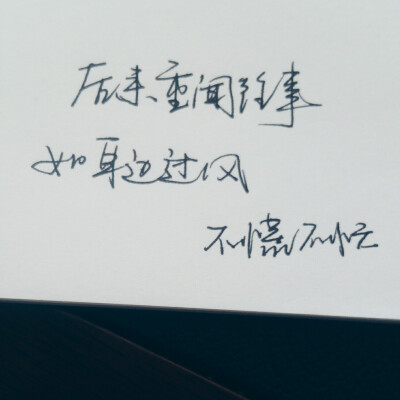 后来重闻往事
如耳边过风
不慌不忙